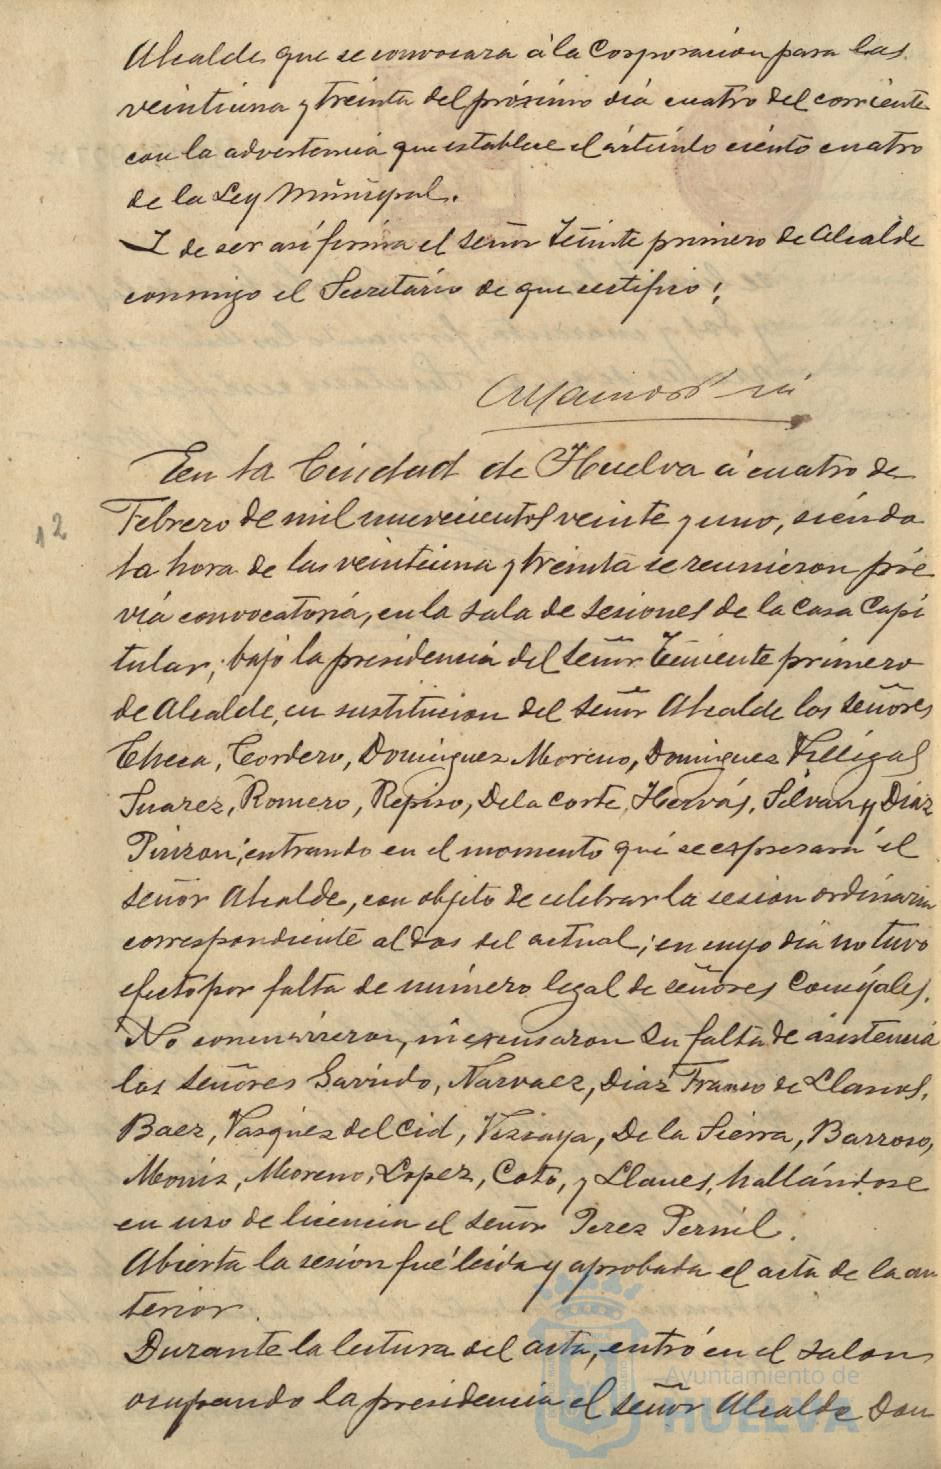 Alcalde que se convocara á la Corporacion para las
veintiuna y treinta del próximo dia cuatro del corriente
con la advertencia que establece el artículo ciento cuatro
de la Ley Municipal.
Y de ser asi firma el señor Teniente primero de Alcalde
conmigo el Secretario de que certifico:
12
En la Ciudad de Huelva á cuatro de
Febrero de mil nuevecientos veinte y uno, siendo
la hora de las veintiuna y treinta se reunieron pré
via convocatoria, en la sala de sesiones de la Casa Capi
tular; bajo la presidencia del señor Teniente primero
de Alcalde, en sustitucion del señor Alcalde los señores
Checa, Cordero, Dominguez Moreno, Dominguez Villegas
Suarez, Romero, Repiso, De la Corte, Hervás, Silvan y Diaz
Pinzon; entrando en el momento que se espresará el
señor Alcalde, con objeto de celebrar la sesion ordinaria
correspondiente al dos del actual; en cuyo dia no tuvo
efecto por falta de número legal de señores Concejales.
No concurrieron, ni escusaron su falta de asistencia
los señores Garrido, Narvaez, Diaz Franco de Llanos,
Baez, Vasquez del Cid, Vizcaya, De la Sierra, Barroso,
Monis, Moreno, Lopez, Coto, y Llanes, hallándose
en uso de licencia el señor Perez Pernil.
Abierta la sesion fué leida y aprobada el acta de la an
terior.
Durante la lectura del acta, entró en el salon
ocupando la presidencia el señor Alcalde Don
Ayuntamiento de
HUELVA